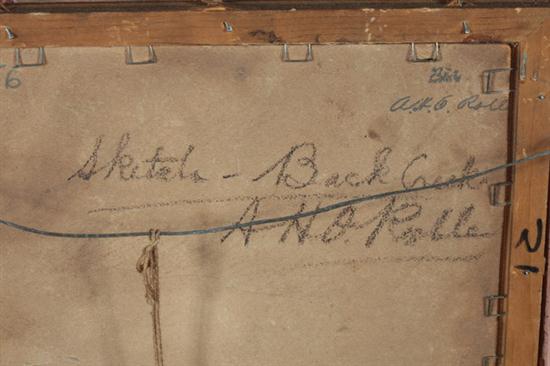 6
A.H.O. Rolle
Sketch - Back Creek
A H O. Rolle
12